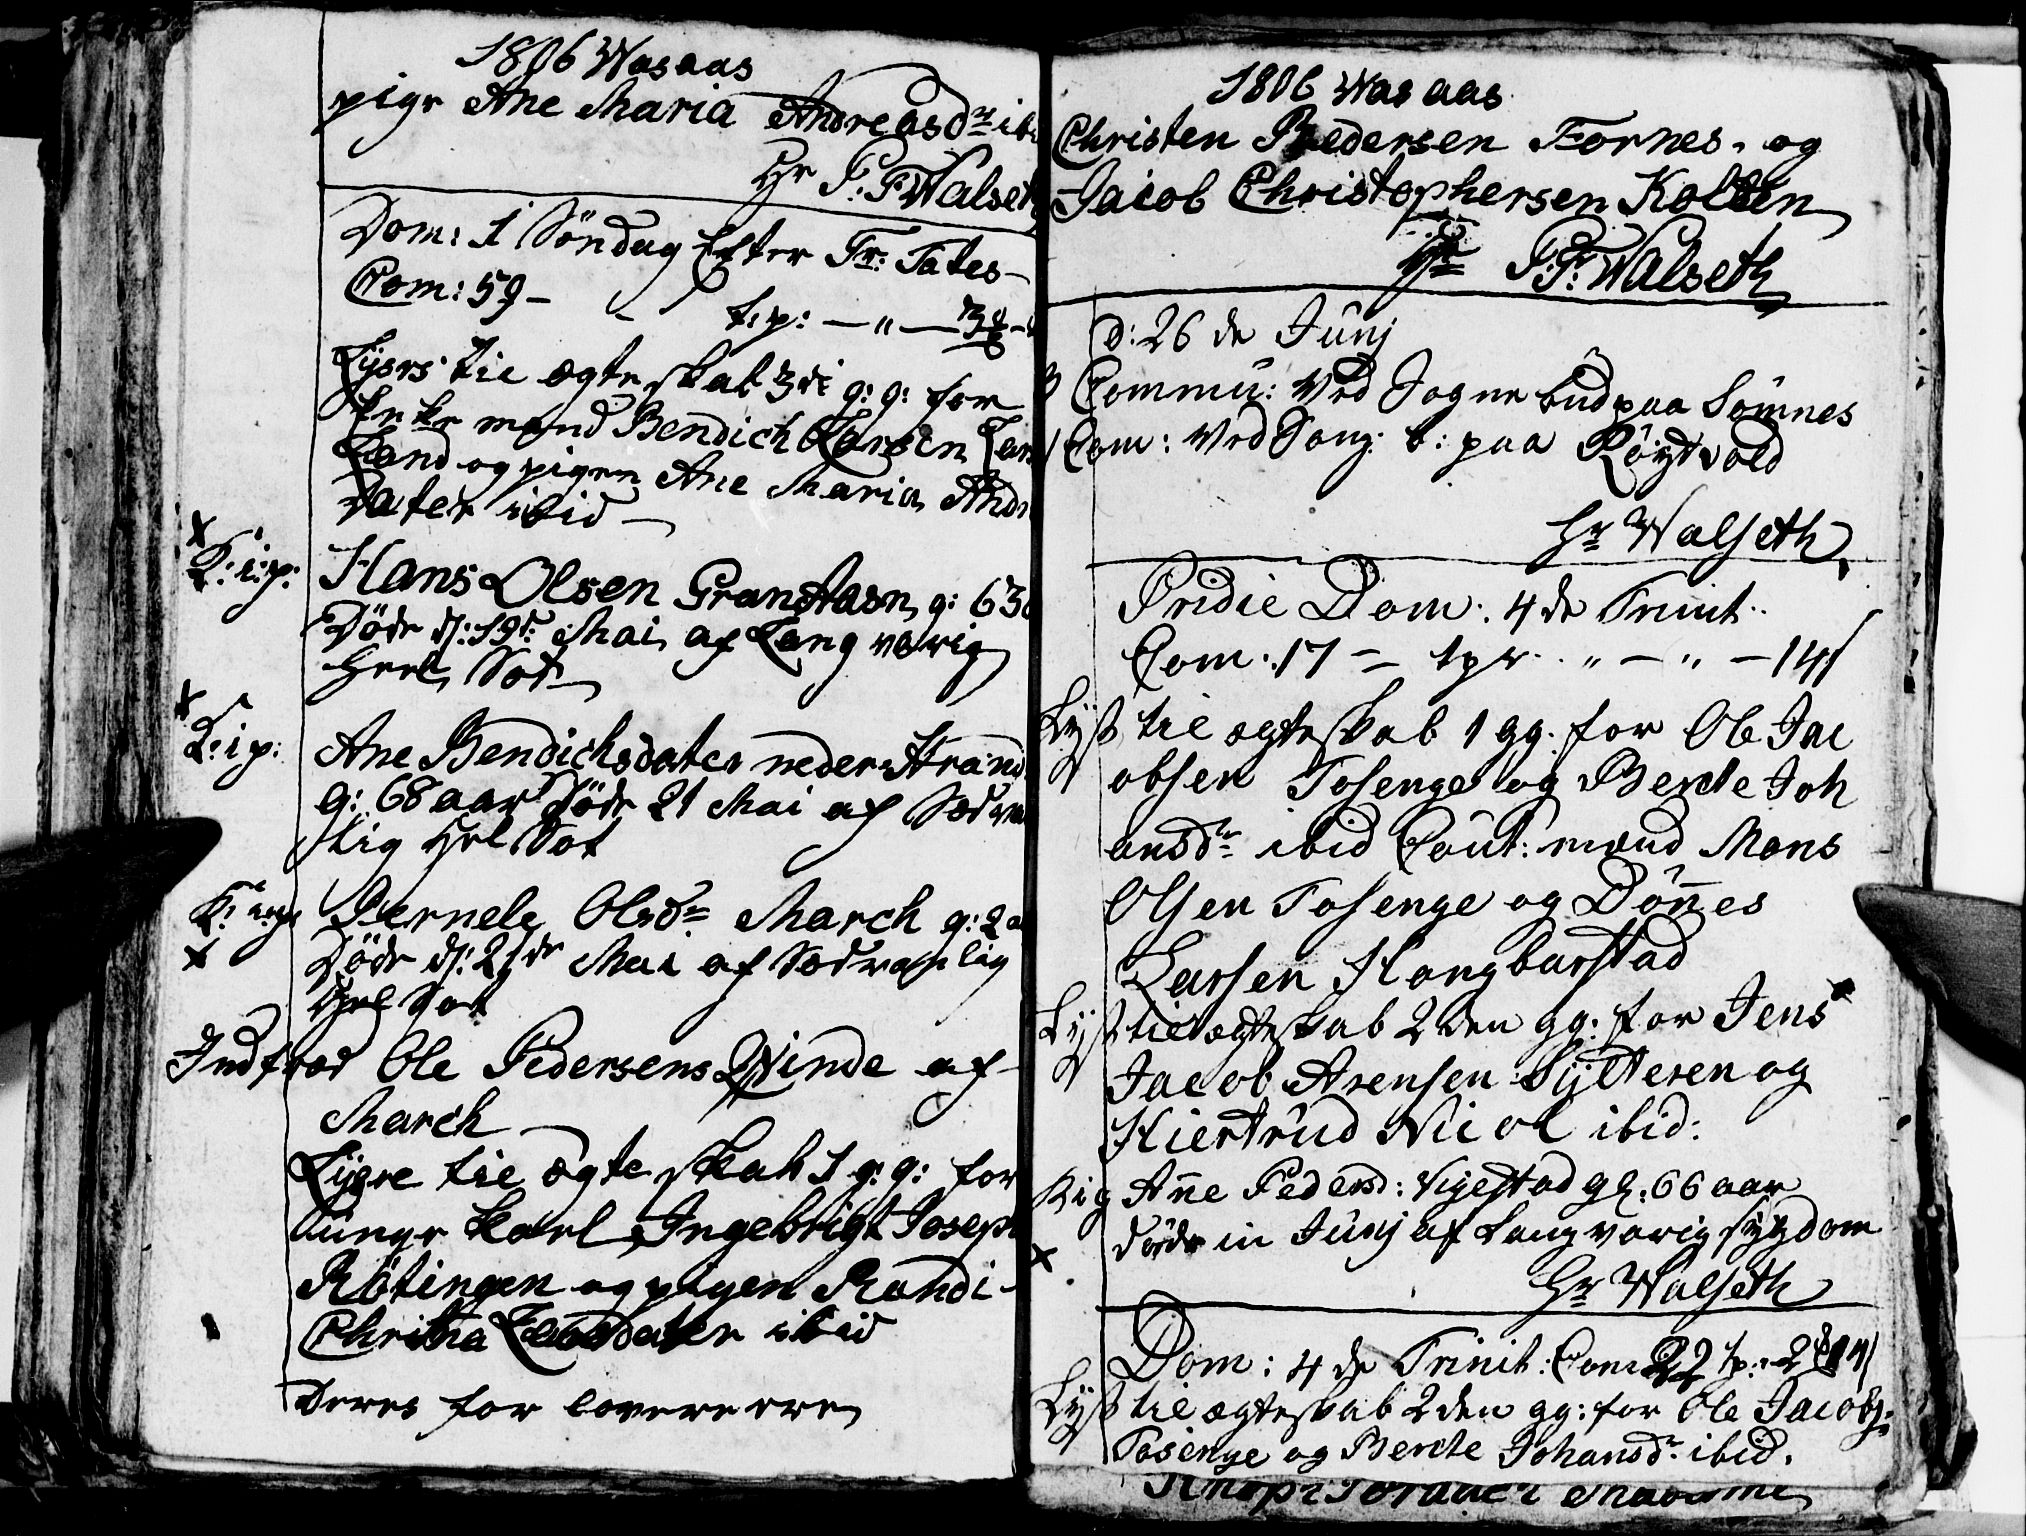 1806 Wasaas
pige Ane Maria Andreasdr ibi
Hr P: F Walseth
Dom: 1 Söndag Efter Tr: Tates
Com: 59 -
t: p: — " —
Lyses til ægteskab 3di g: g: for
Enke mand Bendich Larsen
Land og pigen Ane Maria And
Dater ibid
K: i: p: Hans Olsen Granaasn g: 63
Döde d: 19de Mai af Langvarig
Hrel Sot
K: i p: Ane Bendichsdater neder Strand
g: 68 aar Döde 21 Mai af Sædvan
lig Hrel Sot
K: i: p: Pernele Olsdr March g: 2 a
Döde d: 21de Mai af Sædvanlig
Hrel Sot
Indfröd Ole Pedersens Qvinde af
March
Lyses til ægteskab 1 g: g: for
unge karl Ingebrigt Joseph
Rötingen og pigen Randi
dater ibid
Deres for lovere ere
1806 Wasaas
Christen Pedersen Fornes og
Jacob Christophersen Kolden
Hr P: F: Walseth
d: 26 de Junj
3 Commu: Ved Sognebud paa Sömnes
1 Com: Ved Song: b: paa Röytvold
Hr Walseth
Pridie Dom: 4 de Trinit:
Com: 17 — tpr. " — " — 14
Lyst til ægteskab 1 gg. for Ole Jac
obsen Tosenge og Berete Joh
ansdr ibid Caut: mænd Mons
Olsen Tosenge og Dönnes
Larsen Hongbarstad
Lyst til ægteskab 2den gg: for Jens
Jacob Arensen Sylteren og
Kiertrud Nicol ibid:
Kig Anne Pedersd: Vigestad gl: 66 aar
döde in Junj af Langvarig sygdom
Hr Walseth
Dom: 4 de Trinit: Com: 22 tp:
Lyst til ægteskab 2den gg: for Ole Jacobs:
Tosenge og Berete Johansdr ibid.